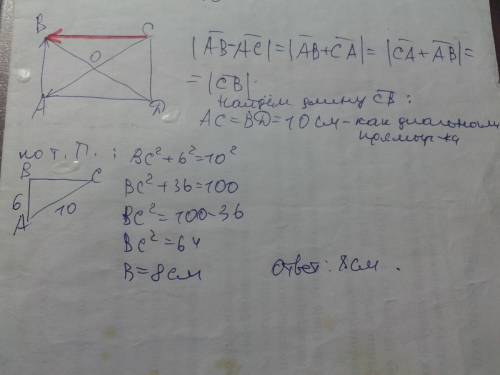 B C
O
A D
|AB-AC|=|AB+CA|=|CA+AB|=
=|CB|.
Найдём длину CB:
AC=BD=10см-как диагонали
прямоуг-ка
по т. П. : BC²+6²=10²
B C
6 10
A
BC²+36=100
BC²=100-36
BC²=64
B=8см
Ответ: 8см.